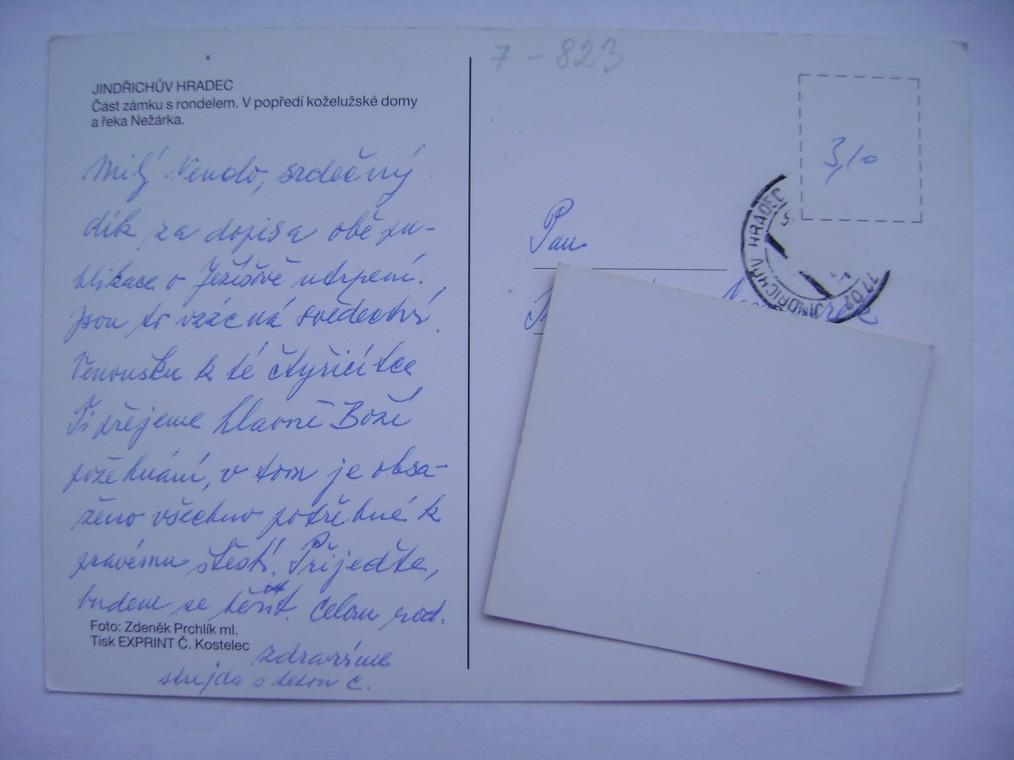 7-823
JINDŘICHŮV HRADEC
Část zámku s rondelem. V popředí koželužské domy
a řeka Nežárka.
Milý Vendo, srdečný
dík za dopis a obě pu-
blikace o Ježíšově utrpení.
Jsou to vzácná svědectví.
Venoušku k té čtyřicítce
Ti přejeme hlavně Boží
požehnání, v tom je obsa-
ženo všechno potřebné k
pravému štěstí. Přijeďte,
budem se těšit. Celou rod.
zdravíme
strejda s tetou C.
Foto: Zdeněk Prchlík ml.
Tisk EXPRINT Č. Kostelec
3,10
JINDŘICHŮV HRADEC
Pan